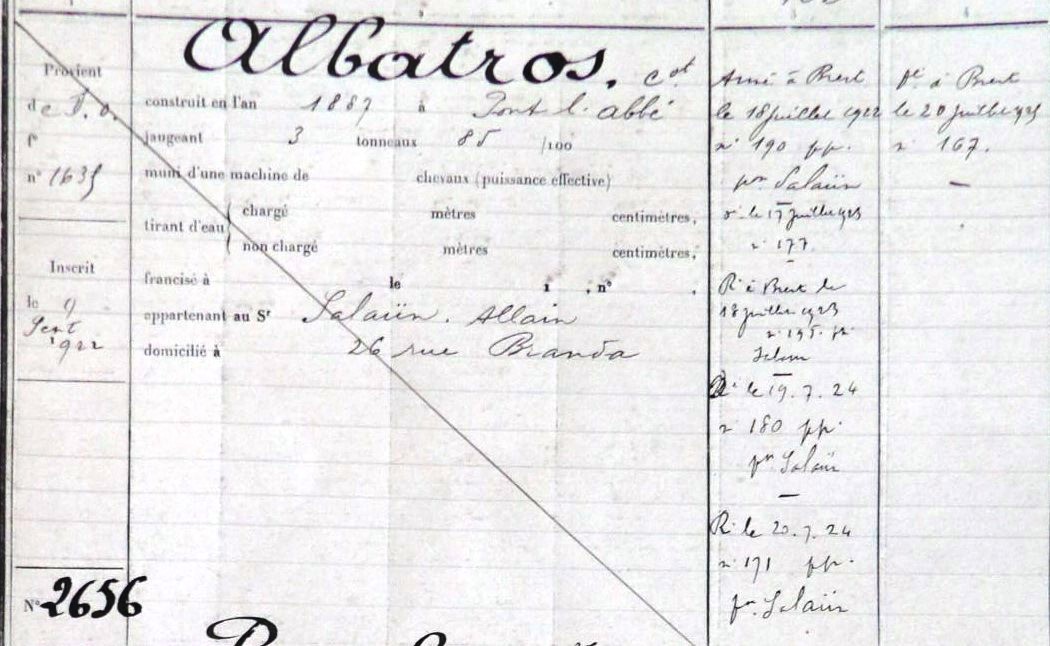 Albatros. cot
Provient
de P. o.
fº
nº 1635
Inscrit
le 9
Sept
1922
construit en l'an 1887 à Pont l'abbé
jaugeant 3 tonneaux 85 /100
muni d'une machine de chevaux (puissance effective)
tirant d'eau
chargé mètres centimètres,
non chargé mètres centimètres,
francisé à le 1 , nº .
appartenant au Sr Salaün. Allain
domicilié à 26 rue Branda
Armé à Brest
le 18 juillet 1922
nº 190 pp.
pn Salaün
dº le 17 juillet 1923
nº 177
R. à Brest le
18 juillet 1923
nº 195. pp.
Salaun
Dº le 19.7.24
nº 180 pp.
pn Salaün
R. le 20.7.24
nº 171 pp.
pn Salaün
à Brest
le 20 juillet 1925
nº 167.
Nº 2656